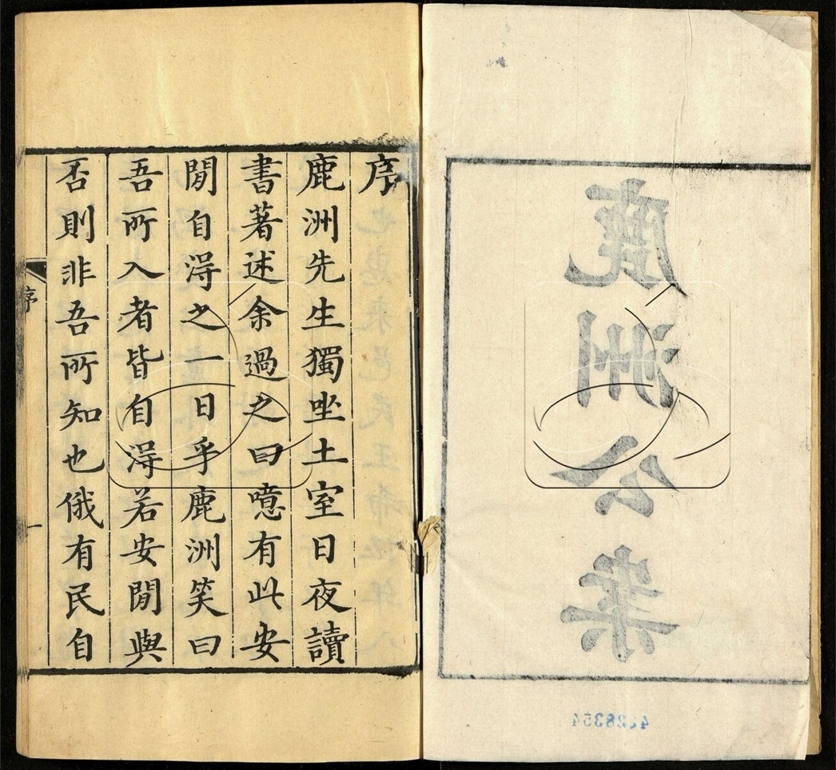 鹿洲公案
序
鹿洲先生獨坐土室日夜讀
書著述余過之曰噫有此安
閒自淂之一日乎鹿洲笑曰
吾所入者皆自淂若安閒與
否則非吾所知也俄有民自
序
一